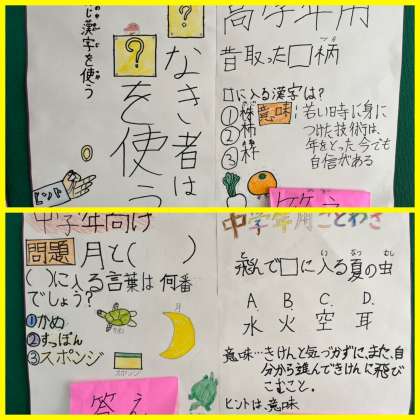 じ漢字を使う
?なき者は
?を使う
ヒント
高学年用
昔取った□柄
□に入る漢字は?
①株
②柿
③
意味:若い時に身に
つけた技術は、
年をとった今でも
自信がある
答え
中学年向け
問題 月と( )
( )に入る言葉は何番
でしょう?
①かめ
②すっぽん
③スポンジ
月
スポンジ
答え
中学年用ことわざ
飛んで□に入る夏の虫
A B C. D.
水 火 空 耳
意味…きけんと気づかずに、また、自
分から進んできけんに飛び
こむこと。
ヒントは、意味